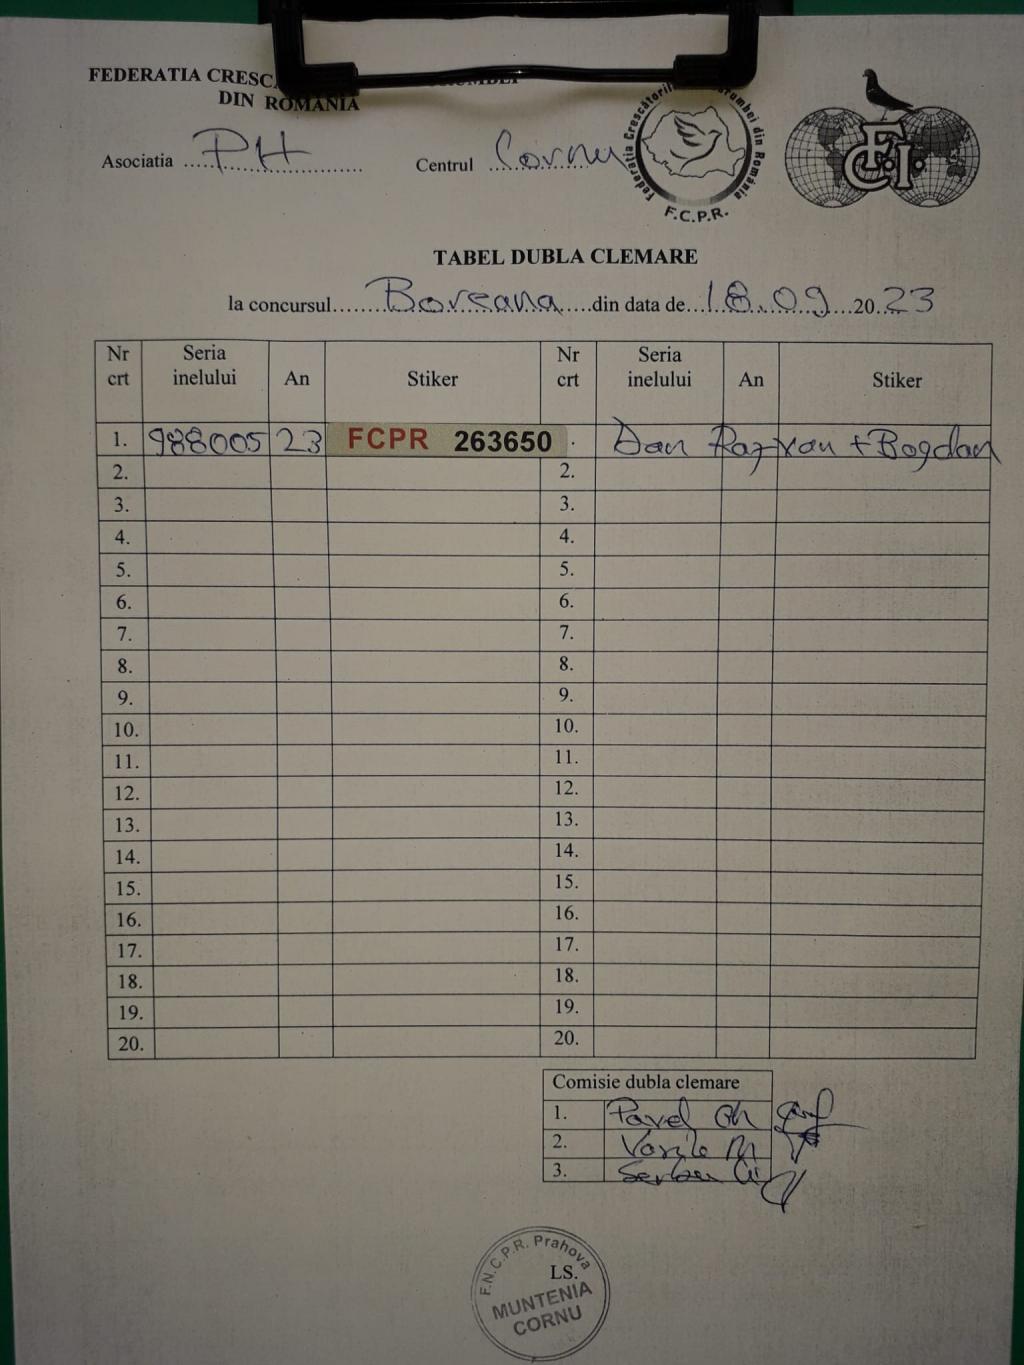 FEDERATIA CRESC
DIN ROMANIA
Asociatia ..... PH ..... Centrul ... Cornu
Federatia Crescătorilor
rumbei din România
F.C.P.R.
F.C.I.
TABEL DUBLA CLEMARE
la concursul..... Boreana .....din data de... 18.09 ...20..23
Nr crt Seria inelului An Stiker Nr crt Seria inelului An Stiker
1. 988005 23 FCPR 263650 . Dan Razvan + Bogdan
2. 2.
3. 3.
4. 4.
5. 5.
6. 6.
7. 7.
8. 8.
9. 9.
10. 10.
11. 11.
12. 12.
13. 13.
14. 14.
15. 15.
16. 16.
17. 17.
18. 18.
19. 19.
20. 20.
Comisie dubla clemare
1. Pavel Gh
2. Vasile M
3. Serban
F.N.C.P.R. Prahova
LS.
MUNTENIA
CORNU